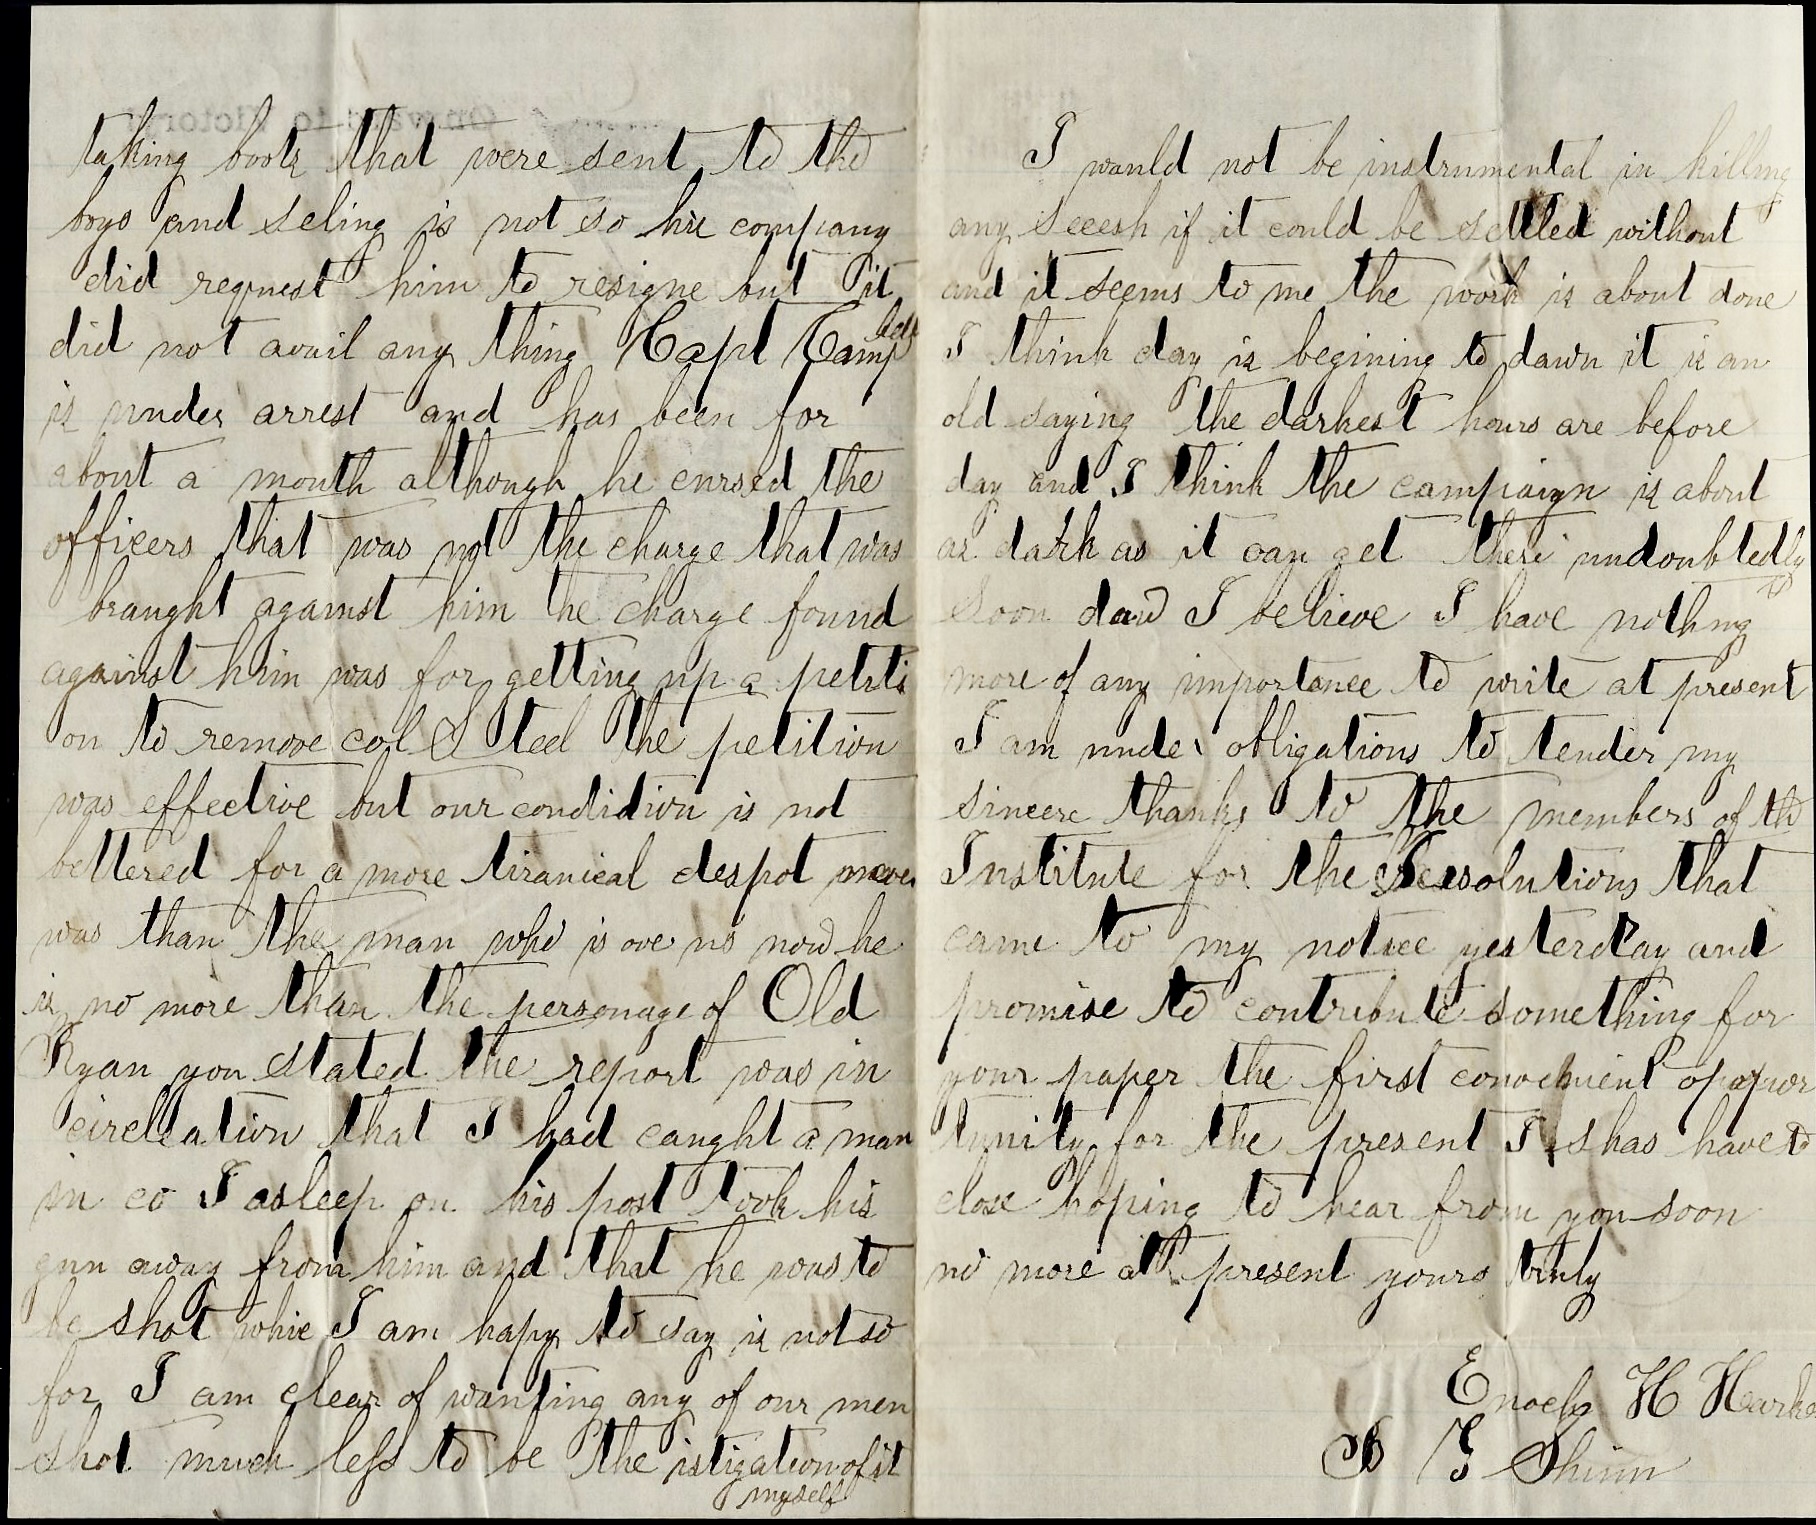 taking boots that were sent to the
boys and seling is not so his company
did request him to resigne but it
did not avail any thing Capt Campbell
is under arrest and has been for
about a month although he cursed the
officers that was not the charge that was
braught against him the charge found
against him was for getting up a petiti
on to remove col Steel the petition
was effective but our condidion is not
bettered for a more tiranical despot never
was than the man who is ove us now he
is no more than the personage of Old
Ryan you stated the report was in
circleation that I had caught a man
in co I asleep on his post took his
gun away from him and that he was to
be shot whic I am hapy to say is not so
for I am clear of wanting any of our men
shot much less to be the istigation of it
myself
I would not be instrumental in killing
any secesh if it could be settled without
and it seems to me the work is about done
I think day is begining to dawn it is an
old saying the darkest hours are before
day and I think the campaign is about
as dark as it can get there undoubtedly
soon daw I believe I have nothing
more of any importance to write at present
I am under obligations to tender my
sincere thanks to the members of the
Institute for the Resolutions that
came to my notice yesterday and
promise to contribute something for
your paper the first convenient oppor
tunity for the present I shas have to
close hoping to hear from you soon
no more at present yours truly
Enoch H
B F Shinn
Onward to Victory